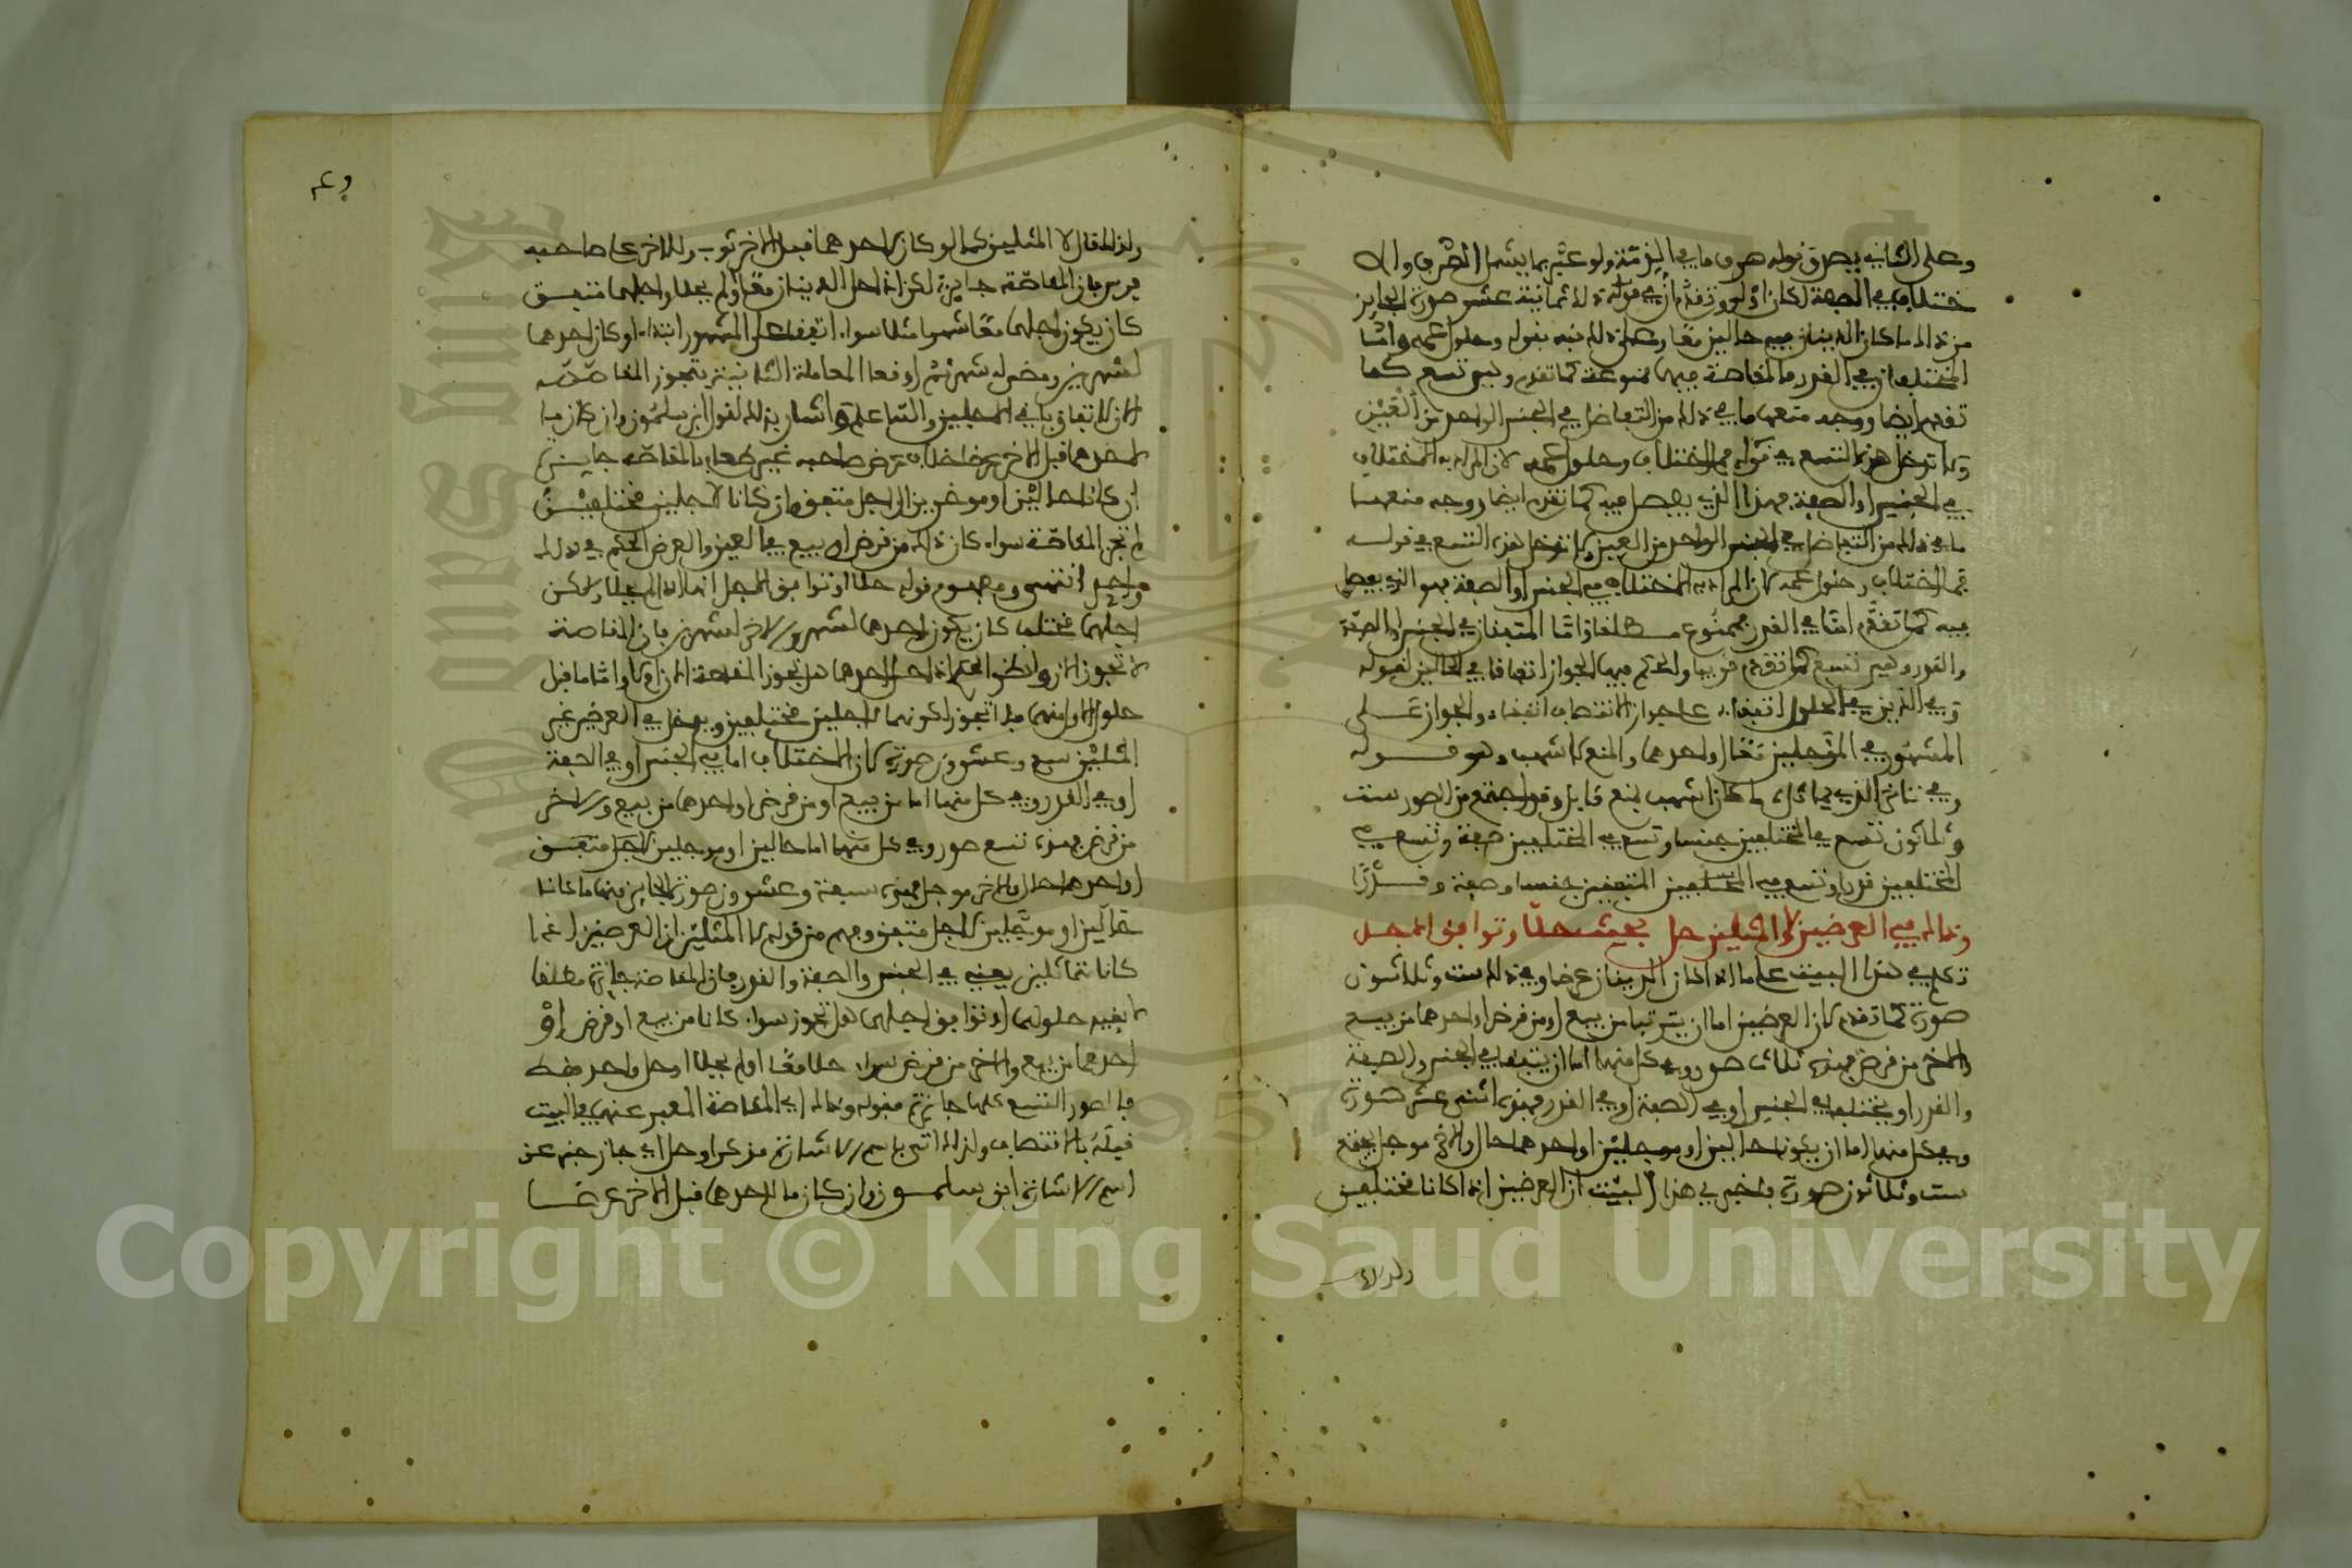 وعلى الثاني يصدق قوله صرف ما في الذمة ولو عبر بما يشمل الصرف والا
ختلاف في الصفة لكان أولى وتقدم أن في ذلك ثمانية عشر صورة الجايز
من ذلك ما كان الدينان فيه حالين معا وعلى ذلك نبه بقوله وحلول عمه وأما
المختلفان في القدر فالمقاصة فيهما ممنوعة كما تقدم وهي تسع كما
تقدم أيضا ووجه منعها ما في ذلك من التفاضل في الجنس الواحد من العين
ولا تدخل هذه التسع في قوله فمع اختلاف وحلول عمه لأن المراد به الاختلاف
في الجنس أو الصفة فهذا الذي يفصل فيه كما تقدم أيضا ووجه منعها
ما في ذلك من التفاضل في الجنس الواحد من العين ولا تدخل هذه التسع في قوله
فمع اختلاف وحلول عمه لأن المراد به الاختلاف في الجنس أو الصفة فهو الذي يفصل
فيه كما تقدم أما في القدر فممنوع مطلقا وأما المتفقان في الجنس والصفة
والقدر وهي تسع كما تقدم قريبا والحكم فيها الجواز اتفاقا في الحالين لقوله
وفي اللذين في الحلول اتفقا على جواز الانتصاف اتفقا والجواز على
المشهور في المؤجلين معا أو أحدهما والمنع لأشهب وهو قوله
وفي تأخر الذي يماثل ما كان أشهب بمنع قايل وقد اجتمع من الصور ست
وثلاثون تسع في المختلفين جنسا وتسع في المختلفين صفة وتسع في
المختلفين قدرا وتسع في المتفقين جنسا وصفة وقدرا
وذاك في العرضين لا المثلين حل بحيث حلا وتوافق الأجل
تكلم في هذا البيت على ما إذا كان الدينان عرضا وفي ذلك ست وثلاثون
صورة كما تقدم لأن العرضين اما ان يترتبا من بيع أو من قرض أو أحدهما من بيع
والآخر من قرض فهذه ثلاث صور وفي كل منهما اما ان يتفقا في الجنس والصفة
والقدر أو يختلفا في الجنس أو في الصفة أو في القدر فهذه اثنتى عشر صورة
وفي كل منها اما ان يكونا حالين أو مؤجلين أو أحدهما حال والآخر موجل فتقع
ست وثلاثون صورة فأخبر في هذا البيت أن العرضين إذا كانا مختلفين
ولذلك قال لا المثلين كما لو كان لأحدهما قبل الآخر ثوب وللآخر على صاحبه
فرس فإن المقاصة جايزة لكن إذا حل الدينان معا أو لم يحلا وأجلهما متفق
كان يكون أجلهما معا شهرا مثلا سواء اتفقا على الشهر ابتداء أو كان لأحدهما
لشهرين ومضى له شهر ثم أوقعا المعاملة الثانية فتجوز المقاصة
الآن لاتفاق باقي الأجلين والى هذا أشار بذلك لقول ابن سلمون وان كان ما
لأحدهما قبل الآخر عرضا خلاف عرض صاحبه غير طعام فالمقاصة جايزة
ان كانا حالين أو موخرين الى أجل متفق فإن كانا لأجلين مختلفين
لم تجز المقاصة سواء كان ذلك من قرض أو بيع في العين والعرض الحكم في ذلك
واحد انتهى ومفهوم قوله حلا أو توافق الأجل انهما إذا لم يحلا ولكن
أجلهما مختلف كان يكون أحدهما لشهر والآخر لشهرين فإن المقاصة
لا تجوز الآن وانظر الحكم إذا حل أحدهما هل تجوز المقاصة الآن أو لا وأما قبل
حلول الأول منهما فلا تجوز لكونهما لأجلين مختلفين ويدخل في العرضين غير
المثلين سبع وعشرون صورة لأن الاختلاف اما في الجنس أو في الصفة
أو في القدر وفي كل منهما اما من بيع أو من قرض أو أحدهما من بيع والآخر
من قرض فهذه تسع صور وفي كل منها اما حالين أو موجلين لأجل متفق
أو أحدهما حال والآخر موجل فهذه سبعة وعشرون صورة الجايز منها ما كانا
حالين أو مؤجلين لأجل متفق وفهم من قوله لا المثلين أن العرضين إذا
كانا متماثلين يعني في الجنس والصفة والقدر فإن المقاصة جائزة مطلقا
لا بقيد حلولهما أو توافق أجلهما بل تجوز سواء كانا من بيع أو قرض أو
أحدهما من بيع والآخر من قرض سواء حلا معا أو لم يحلا أو حل واحد فقط
فالصور التسع كلها جائزة فقوله وذاك أي المقاصة المعبر عنها في البيت
قبله بالانتصاف ولذلك أتى باسم الإشارة مذكرا وحل أي جاز خبر عن
اسم الإشارة ابن سلمون وان كان ما لأحدهما قبل الآخر عرضا